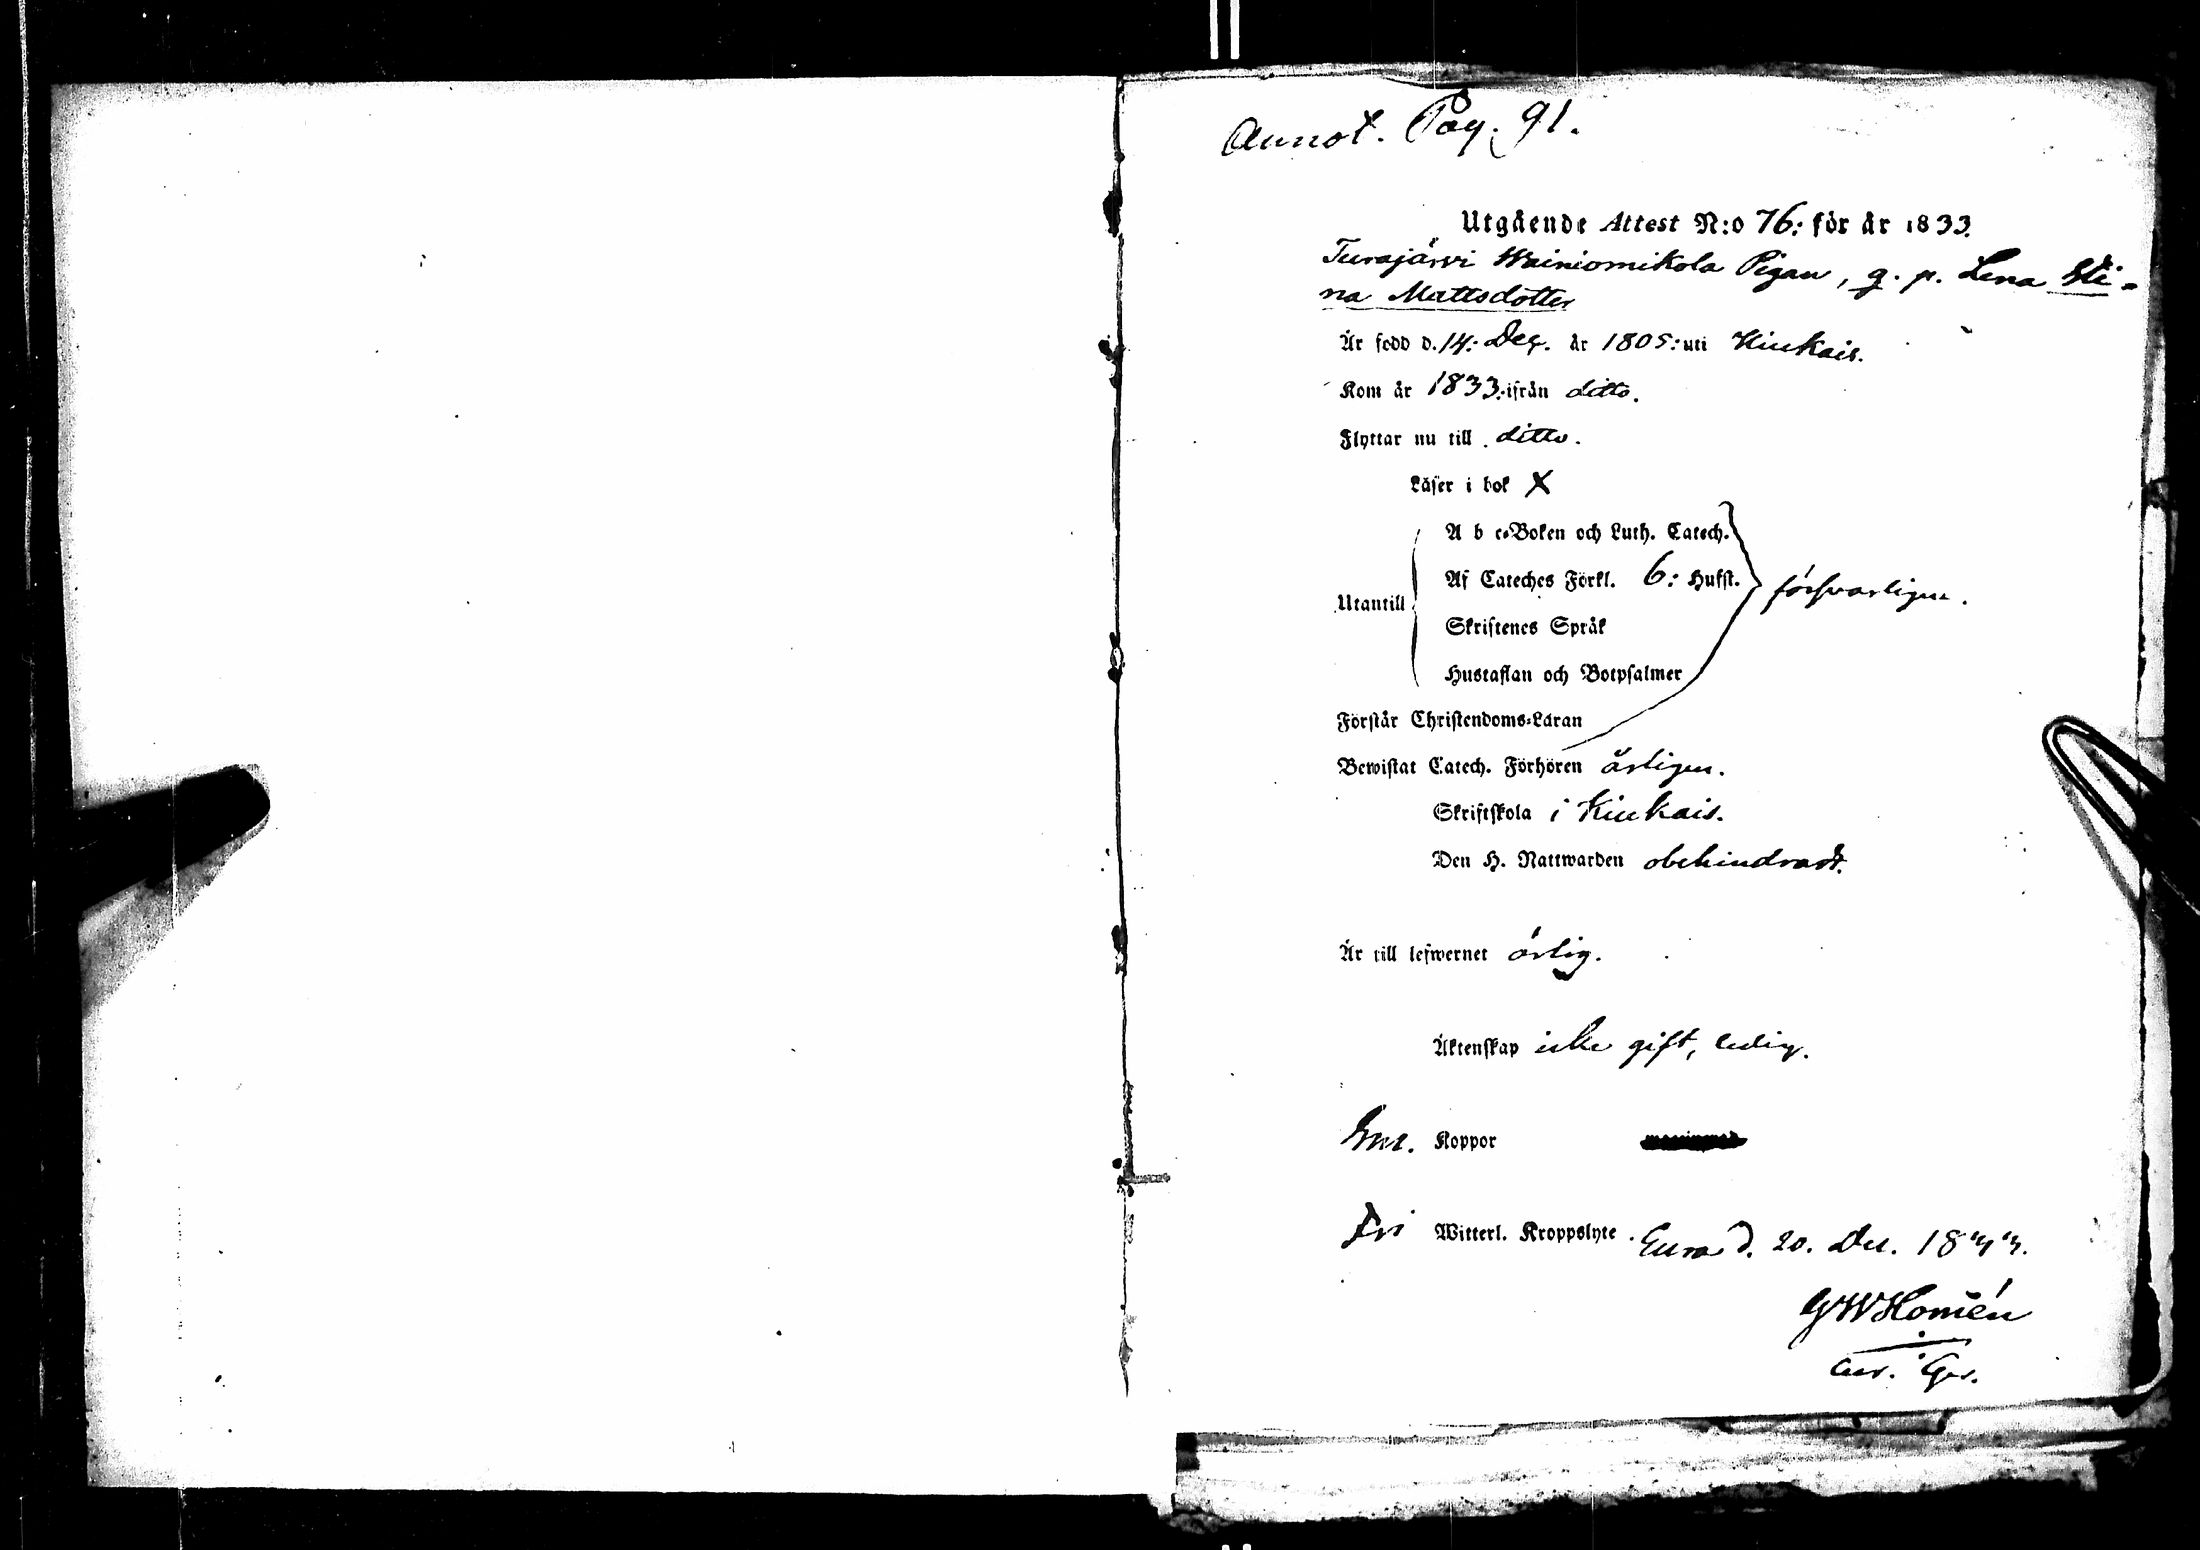 Annot. Pag. 91.
Utgående Attest N:o 76: för år 1833.
Turajärvi Wainiomikola Pigan, g. p. Lena Sti-
na Mattsdotter
Är född d. 14: Dec. år 1805: uti Kiukais.
Kom år 1833: ifrån ditto.
Flyttar nu till ditto.
Läser i bok X
A b c-Boken och Luth. Catech.
Af Cateches Förkl. 6: Hufst.
försvarligen.
Utantill
Skriftenes Språk
Hustaflan och Botpsalmer
Förstår Christendoms-Läran
Bewistat Catech. Förhören årligen.
Skriftskola i Kiukais.
Den H. Nattwarden obehindradt.
Är till lefwernet ärlig.
Äktenskap icke gift, ledig.
Koppor
Fri Witterl. Kroppslyte. Eura d. 20. Dec. 1833.
GWHomén